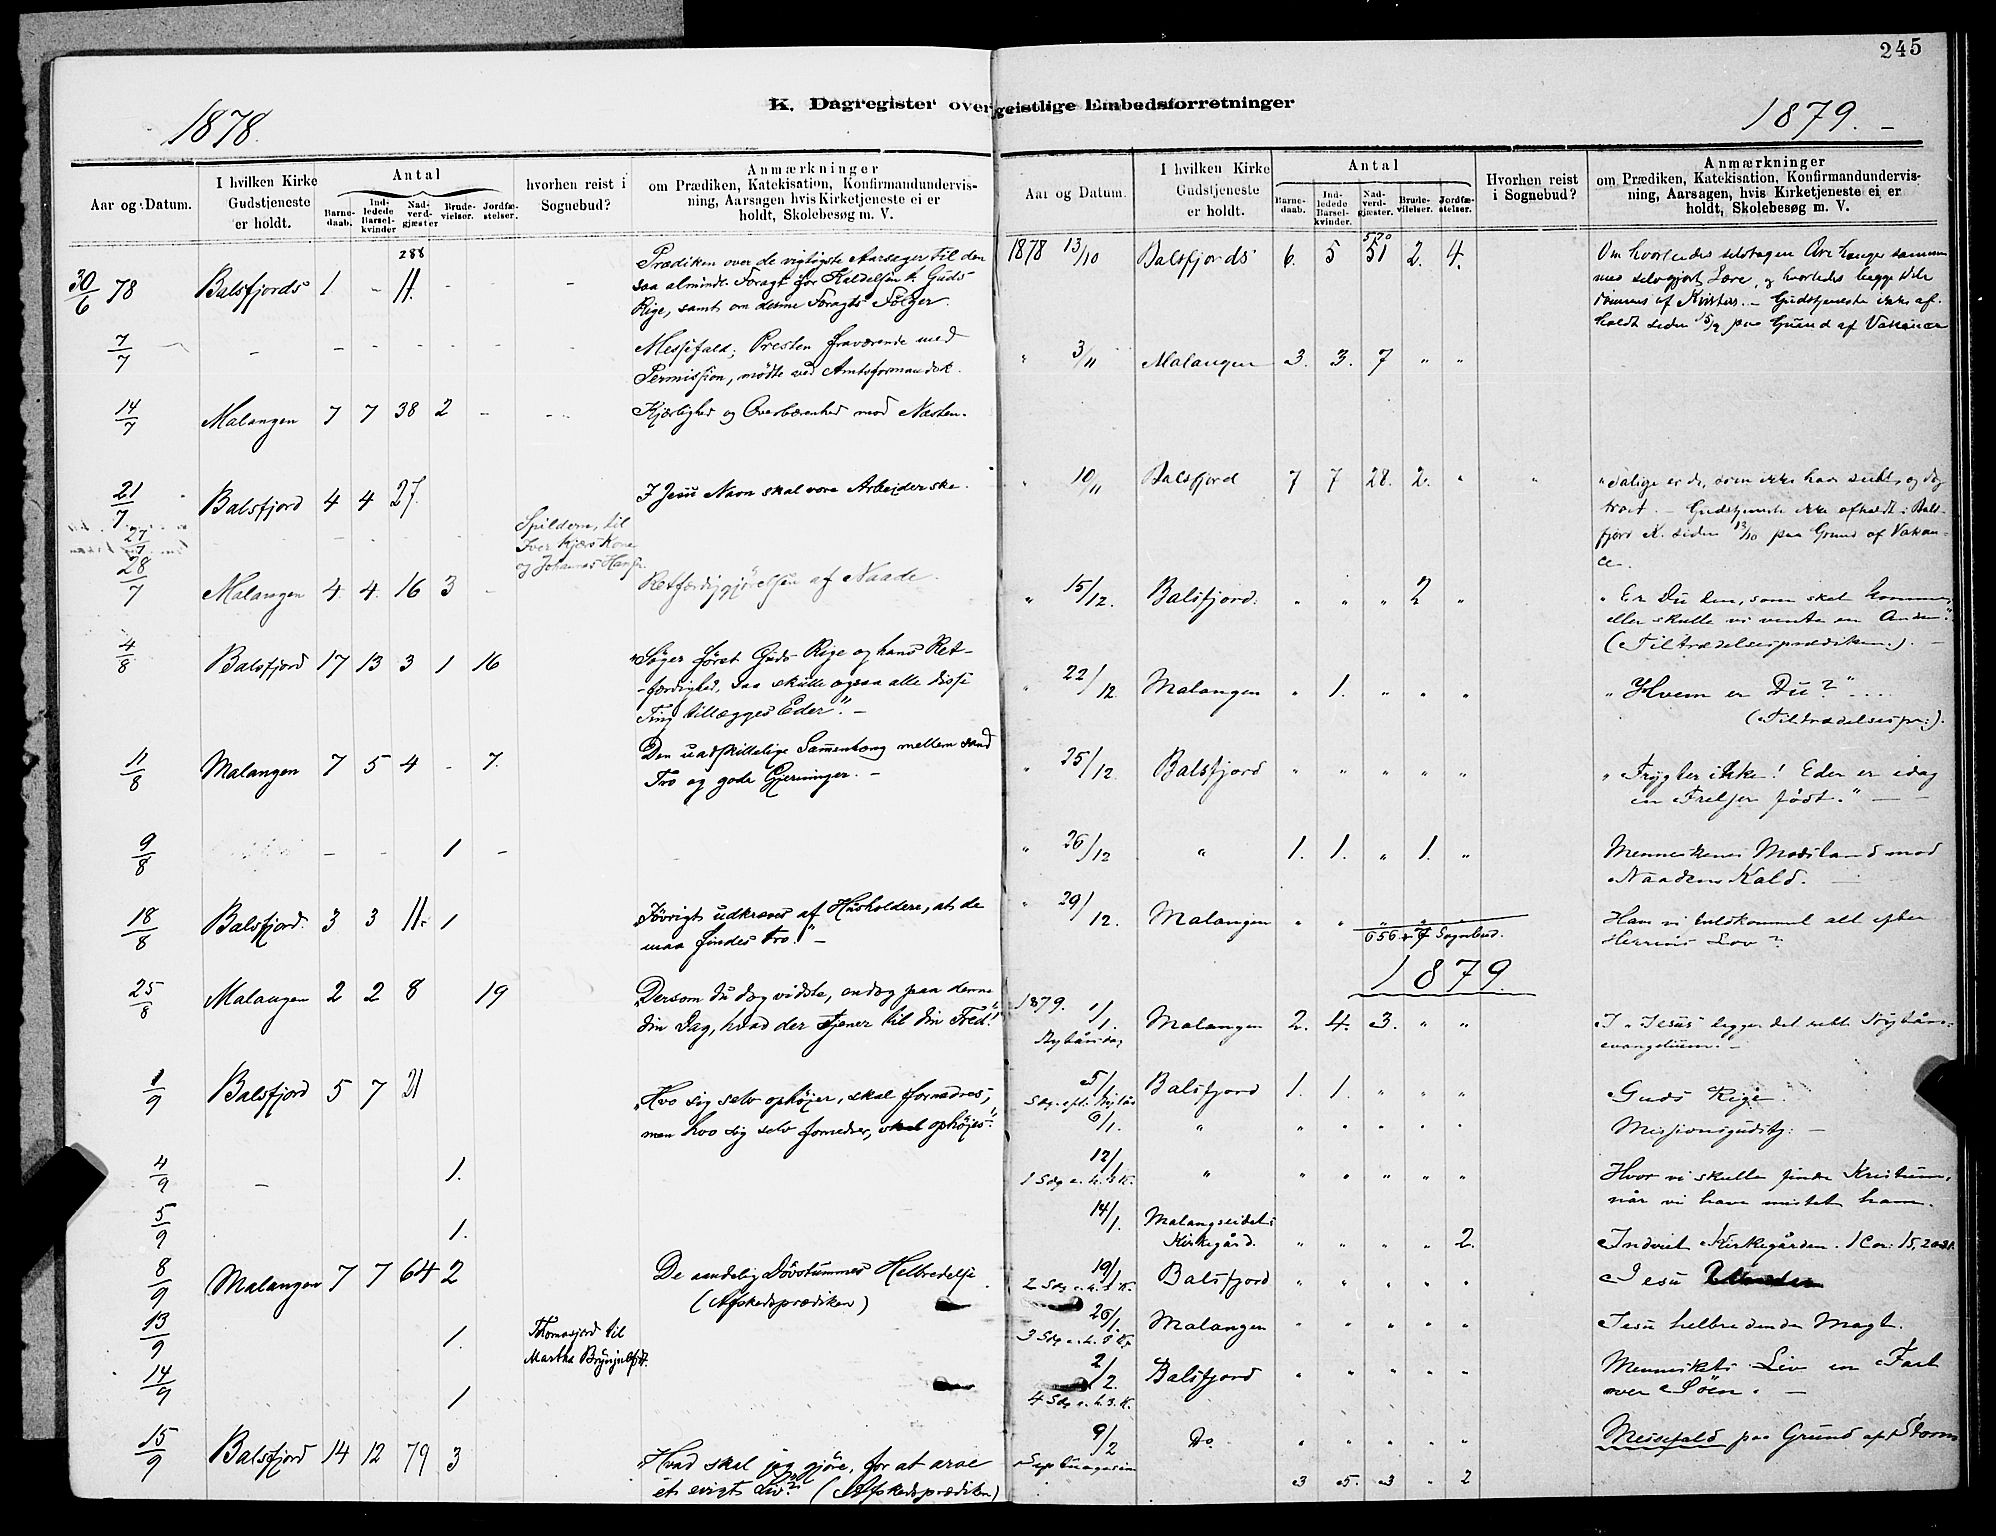 245
K. Dagregister over geistlige Embedsforretninger
1878.
Aar og Datum. I hvilken Kirke Gudstjeneste er holdt. Antal Barnedaab. Indledede Barselkvinder Nadverdgjæster. Brudevielser. Jordfæstelser. hvorhen reist i Sognebud? Anmærkninger om Prædiken, Katekisation, Konfirmandundervisning, Aarsagen hvis Kirketjeneste ei er holdt, Skolebesøg m. V.
288
30/6 78 Balsfjords 1 - 11. - - - Prædiken over de vigtigste Aarsager til den
saa almindl. Foragt for Kaldelsen t. Guds
Rige, samt om denne Foragts Følger.
7/7 - - - - - - - Messefald; Presten fraværende med
Permission, mødte ved Amtsformandsk.
14/7 Malangen 7 7 38 2 - - Kjærlighed og Overbærenhed mod Næsten.
21/7 Balsfjord 4 4 27. I Jesu Navn skal vore Arbejder ske.
27/7 Spildern, til
Iver Kjærs Kone
og Johannes Hans.
28/7 Malangen 4. 4. 16 3 - Retfærdiggjørelsen af Naade.
4/8 Balsfjord 17 13 3 1 16 "Søger først Guds Rige og hans Ret-
færdighed, saa skulle ogsaa alle disse
Ting tillægges Eder". -
11/8 Malangen 7 5 4 - 7. Den uadskillelige Sammenhæng mellem sand
Tro og gode Gjerninger. -
9/8 - - 1 -
18/8 Balsfjord. 3 3 11. 1 Iøvrigt udkræves af Husholdere, at de
maa findes tro." -
25/8 Malangen 2 2 8 19 "Dersom du dog vidste, endog paa denne
din Dag, hvad der tjener til din Fred!"
1/9 Balsfjord 5 7 21 "Hvo sig selv ophøjer, skal fornedres;
men hvo sig selv fornedrer, skal ophøjes".
4/9 - 1.
5/9 1.
8/9 Malangen 7 7 64 2 De aandelig Døvstummes Helbredelse
(Afskedsprædiken)
13/9 1. Thomasjord til
Martha Brynjulfsd.
14/9 1
15/9 Balsfjord 14 12 79 3 "Hvad skal jeg gjøre, for at arve
et evigt Liv?" (Afskedsprædiken)
1879. -
Aar og Datum. I hvilken Kirke Gudstjeneste er holdt. Antal Barnedaab. Indledede Barselkvinder. Nadverdgjæster. Brudevielser. Jordfæstelser. Hvorhen reist i Sognebud? Anmærkninger om Prædiken, Katekisation, Konfirmandundervisning, Aarsagen, hvis Kirketjeneste ei er holdt, Skolebesøg m. V.
570
1878 13/10 Balsfjords 6. 5 51 2. 4. Om hvorledes selvtagen Ære hænger sammen
med selvgjort Lære, og hvorledes begge Dele
dømmes af Kristus. - Gudstjeneste ikke af-
holdt siden 15/9 paa Grund af Vakance
" 3/11 Malangen 3. 3. 7 " "
" 10/11 Balsfjord 7 7 28. 2. " " "Salige er de, som ikke have seet, og dog
troet. - Gudstjeneste ikke afholdt i Bals-
fjord K. siden 13/10 paa Grund af Vakan-
ce.
" 15/12. Balsfjord. " " " 2 " "Er Du den, som skal komme,
eller skulle vi vente en Anden?"
(Tiltrædelsesprædiken.). -
" 22/12. Malangen " 1. " " " "Hvem er Du?" ....
(Tiltrædelsespr.).
" 25/12. Balsfjord " " " " " "Frygter ikke! Eder er idag
en Frelser født." - -
" 26/12 " 1. 1. " 1. " Menneskenes Modstand mod
Naadens Kald. -
" 29/12. Malangen " " " " " Have vi fuldkommet alt efter
Herrens Lov?
656 + 7 Sognebud.
1879.
1879. 1/1. Malangen 2. 4. 3. " " I "Jesus" ligger det rette Nytårs-
Nytårsdag evangelium. -
5/1 Balsfjord 1. 1. " " " Guds Rige.
Sdg. eft. Nytår
6/1. " " " " " " Missionsgudstj: -
12/1 " " " " " " Hvor vi skulle finde Kristum,
1 Sdg e. h. 3 K. når vi have mistet ham.
14/1. Malangseidets
Kirkegård. " " " " 2. Indviet Kirkegården. 1 Cor: 15, 20
19/1 Balsfjord " " " " " Jesu
2 Sdg e. h. 3 K.
26/1. Malangen " " " " " Jesu helbredende Magt.
3 Sdg e. h. 3 K.
2/2. Balsfjord " " " " " Menneskets Liv en Fart
4 Sdg e. h. 3. K. over Søen. -
9/2 Do " " " " " Messefald paa Grund af Storm
Septuagesima
3 5. 3 " 2